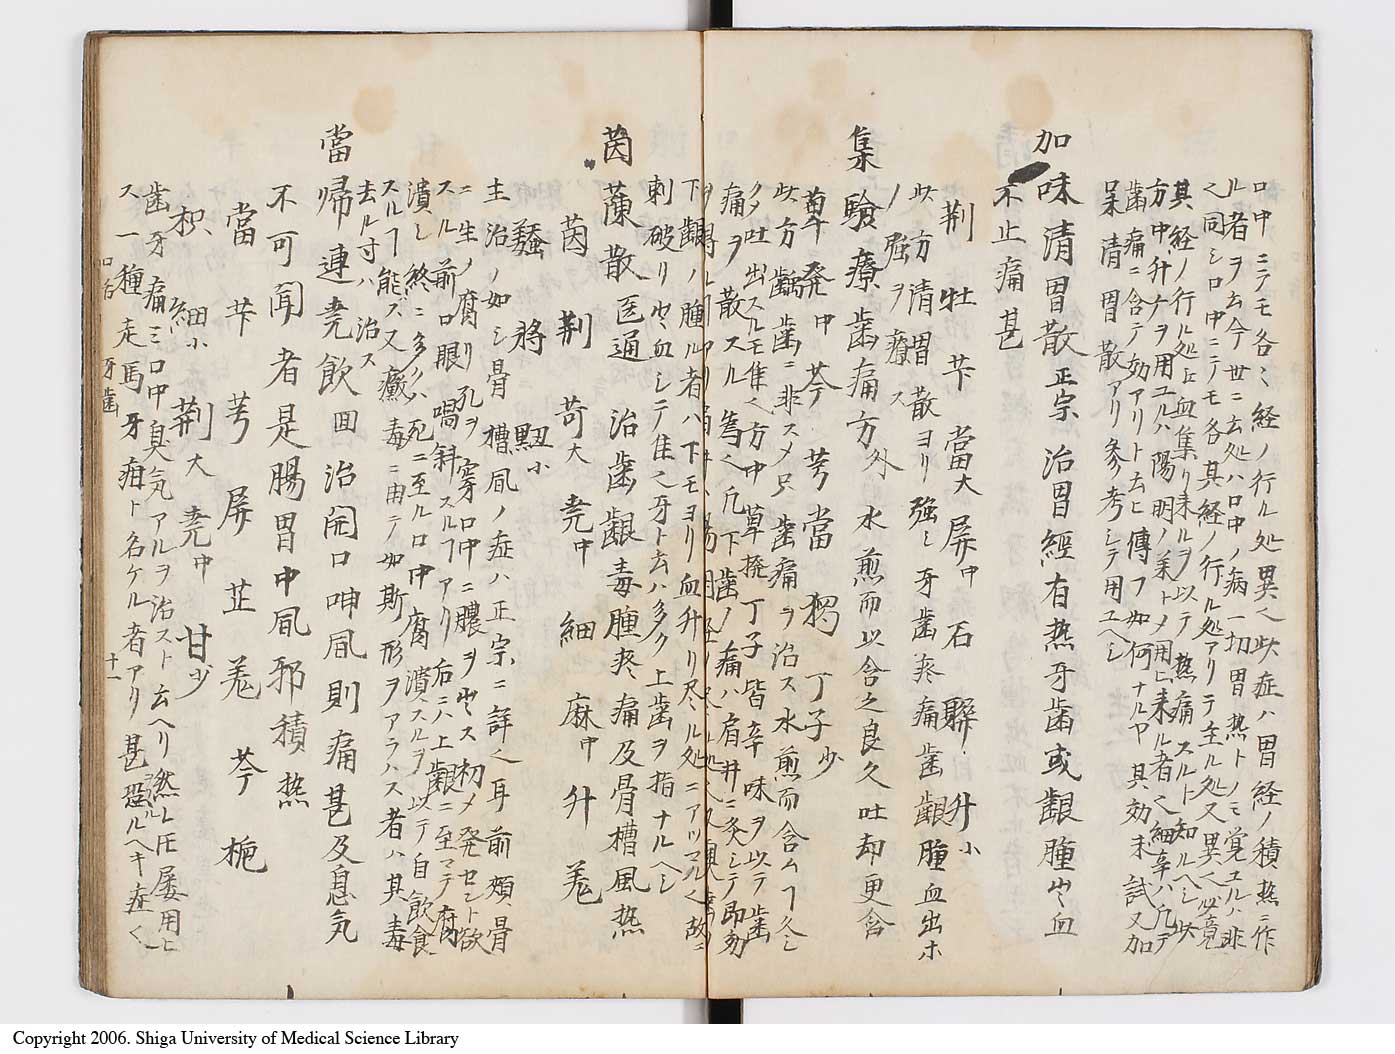 口中ニテモ各〻経ノ行ル処異〻此症ハ胃経ノ積熱ニ作
ル者ヲ云今世ニ云処ハ口中ノ病一切胃熱トノモ覚ユルハ非
〻同シロ中ニテモ各其経ノ行ル処アリテ主ル処又異〻必竟
其経ノ行ル処ヒ血集リ来ルヲ以テ熱痛スルト知ルヘシ此
方中升ナヲ用ユルハ陽明ノ薬トメ用ヒ来ル者〻細辛ハ凡テ
歯痛ニ含テ効アリト云ヒ傳フ如何ナルヤ其効未試又加
味清胃散アリ参考シテ用ユヘシ
加味清胃散 正宗 治胃經有热牙歯或齦腫出血
不止痛甚
荆 牡 芐 當大 屏中 石 翹 升小
此方清胃散ヨリ強シ牙歯疼痛歯齦腫血出ホ
ノ強ヲ療ス
集驗療歯痛方 外 水煎而以含之良久吐却更含
蓽発中 芩 芎 當 獨 丁子少
此方齲歯ニ非スメ只歯痛ヲ治ス水煎而含ムヿ久シ
クメ吐出スルモ隹〻方中蓽撥丁子皆辛味ヲ以テ歯
痛ヲ散スル為〻凡下歯ノ痛ハ肩井ニ灸シテ即効
下齦ノ腫ル者ハ下モヨリ血升リ尽ル処ニアツマル〻故ニ
刺破リ出血シテ隹〻牙ト云ハ多ク上歯ヲ指ナルヘシ
茵蔯散 医通 治歯齦毒腫疼痛及骨槽風热
茵 荆 苛大 尭中 細 麻中 升 羗
蠶 将 丑小
主治ノ如シ骨槽風ノ症ハ正宗ニ詳〻耳前頬骨
ニ生ノ腐リ孔ヲ穿口中ニ膿ヲ出ス初メ発セント欲
スル前口眼喎斜スルヿアリ后ニハ上齦ニ至マテ腐
潰シ終ニ多クハ死ニ至ル口中腐潰スルヲ以テ自飲食
スルヿ能ス又癩毒ニ由テ如斯形ヲアラハス者ハ其毒
去ル寸ハ治ス
當帰連尭飲 回 治開口呻風則痛甚及息気
不可聞者是腸胃中風邪積热
當 芐 芎 屏 芷 羗 芩 梔
枳 細小 荆大 尭中 甘少
歯牙痛ミ口中臭気アルヲ治スト云ヘリ然レ圧屡用ヒ
ス一種走馬牙疳ト名ケル者アリ甚恐ルヘキ症〻
口舌 牙歯
十一
Copyright 2006. Shiga University of Medical Science Library